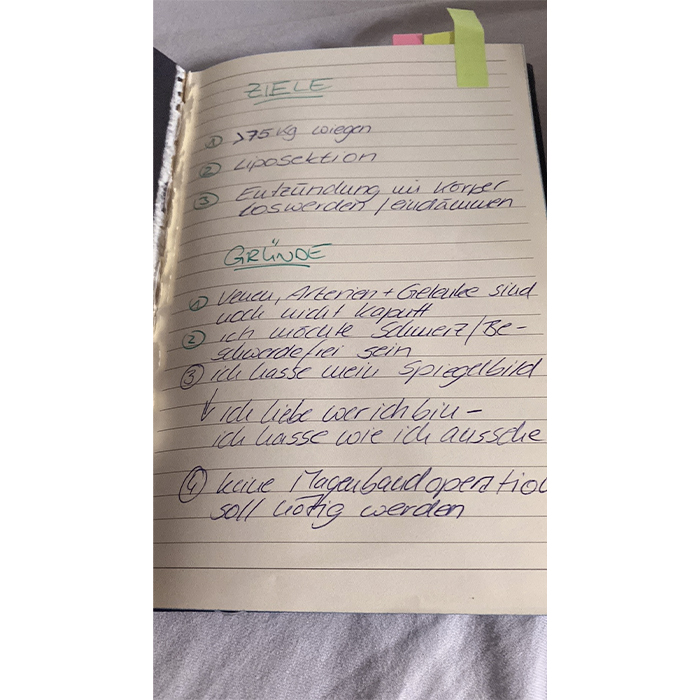 ZIELE
① >75kg wiegen
② Liposektion
③ Entzündung im Körper
loswerden / eindämmen
GRÜNDE
① Venen, Arterien + Gelenke sind
noch nicht kaputt
② ich möchte Schmerz/Be-
schwerdefrei sein
③ ich hasse mein Spiegelbild
↓ ich liebe wer ich bin -
ich hasse wie ich aussehe
④ keine Magenbandoperation
soll nötig werden